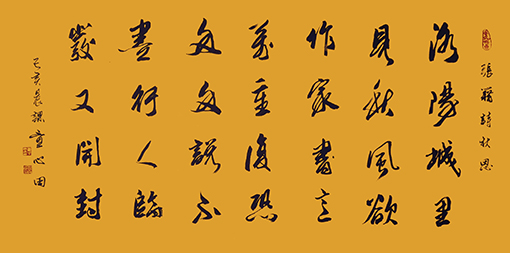 張籍詩秋思
洛陽城里
見秋風欲
作家書意
萬重復恐
匆匆說不
盡行人臨
發又開封
己亥 心田